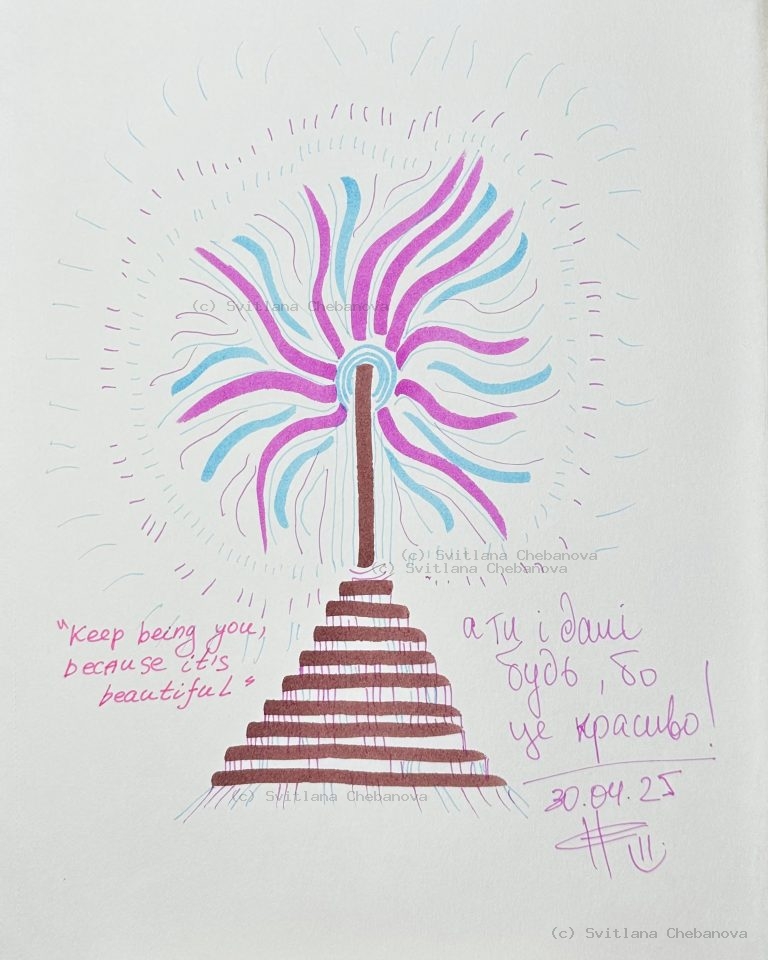 (c) Svitlana Chebanova
(c) Svitlana Chebanova
(c) Svitlana Chebanova
"Keep being you,
because it's
beautiful"
а ти і далі
будь, бо
це красиво!
30.04.25
(c) Svitlana Chebanova
(c) Svitlana Chebanova